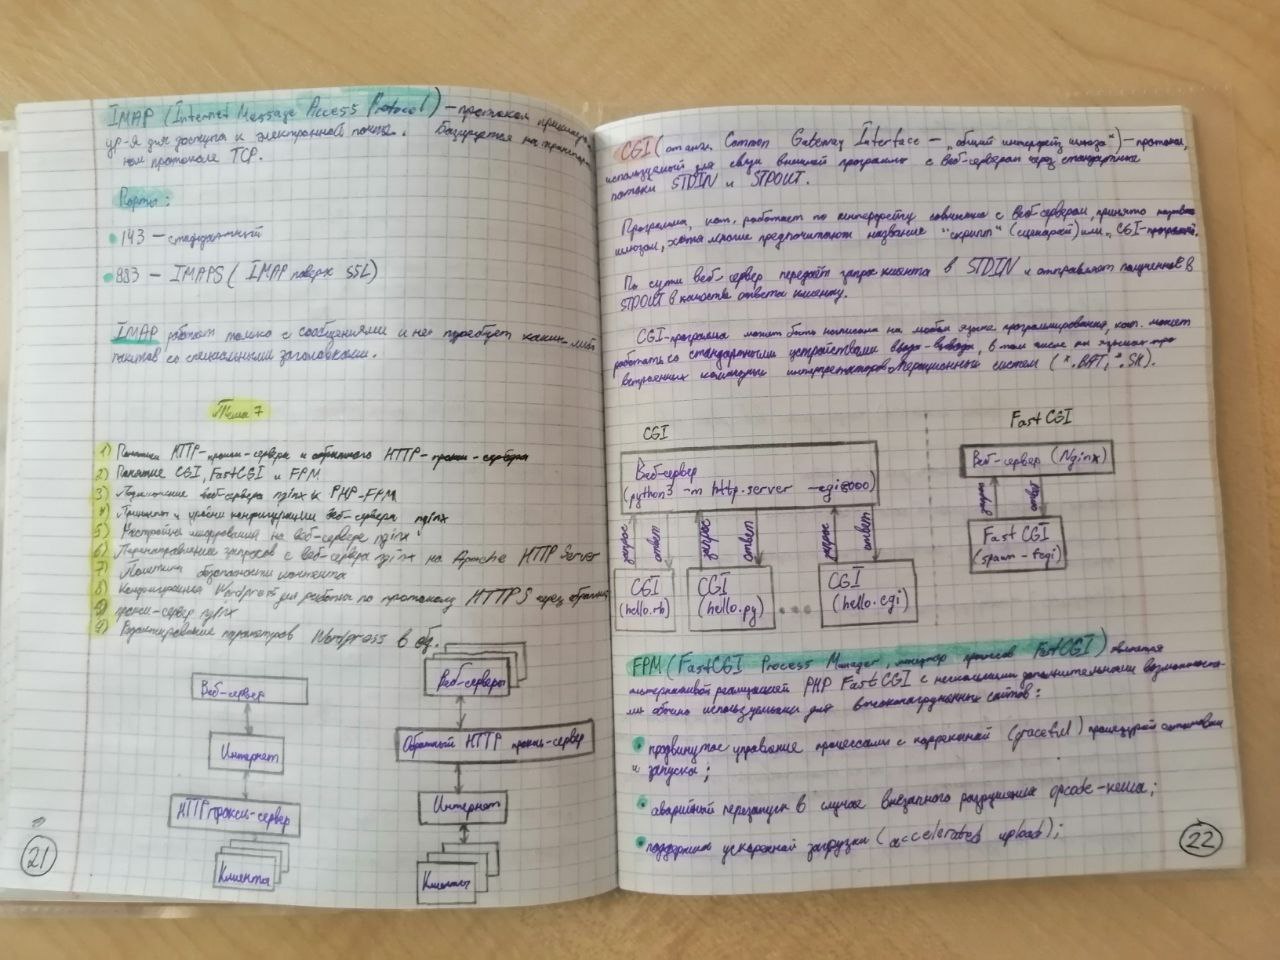 IMAP (Internet Message Access Protocol) — протокол прикладн.
ур-я для доступа к электронной почте. Базируется на транспорт
ном протоколе TCP.
Порты:
143 — стандартный
993 — IMAPS (IMAP поверх SSL)
IMAP работает только с сообщениями и не требует каких-либо
пакетов со специальными заголовками.
Тема 7
1) Понятия HTTP-прокси-сервера и обратного HTTP-прокси-сервера
2) Понятие CGI, FastCGI и FPM
3) Подключение веб-сервера nginx к PHP-FPM
4) Принципы и уровни конфигурации веб-сервера nginx
5) Настройка шифрования на веб-сервере nginx
6) Перенаправление запросов с веб-сервера nginx на Apache HTTP Server
7) Политика безопасности контента
8) Конфигурация Wordpress для работы по протоколу HTTPS через обратный
прокси-сервер nginx
9) Редактирование параметров Wordpress в бд.
Веб-сервер
Интернет
HTTP прокси-сервер
Клиента
Веб-серверы
Обратный HTTP прокси-сервер
Интернет
Клиент
21
CGI (от англ. Common Gateway Interface — „общий интерфейс шлюза") — протокол,
используемый для связи внешней программы с веб-сервером через стандартные
потоки STDIN и STDOUT.
Программа, кот. работает по интерфейсу совместно с веб-сервером, принято называть
шлюзом, хотя многие предпочитают название "скрипт" (сценарий) или „CGI-программа.
По сути веб-сервер передаёт запрос клиента в STDIN и отправляет полученное в
STDOUT в качестве ответа клиенту.
CGI-программа может быть написана на любом языке программирования, кот. может
работать со стандартными устройствами ввода-вывода, в том числе на языках
встроенных командных интерпретаторов операционных систем (*.BAT, *.SH).
CGI
Веб-сервер
(python3 -m http.server --cgi 8000)
запрос ответ запрос ответ запрос ответ
CGI
(hello.rb)
CGI
(hello.py)
...
CGI
(hello.cgi)
FastCGI
Веб-сервер (Nginx)
запрос ответ
FastCGI
(spawn-fcgi)
FPM (FastCGI Process Manager, менеджер процессов FastCGI) является
альтернативой реализацией PHP FastCGI с несколькими дополнительными возможностя
ми обычно используемыми для высоконагруженных сайтов:
продвинутое управление процессами с корректной (graceful) процедурой остановки
и запуска;
аварийный перезапуск в случае внезапного разрушения opcode-кеша;
поддержка ускоренной загрузки (accelerated upload);
22